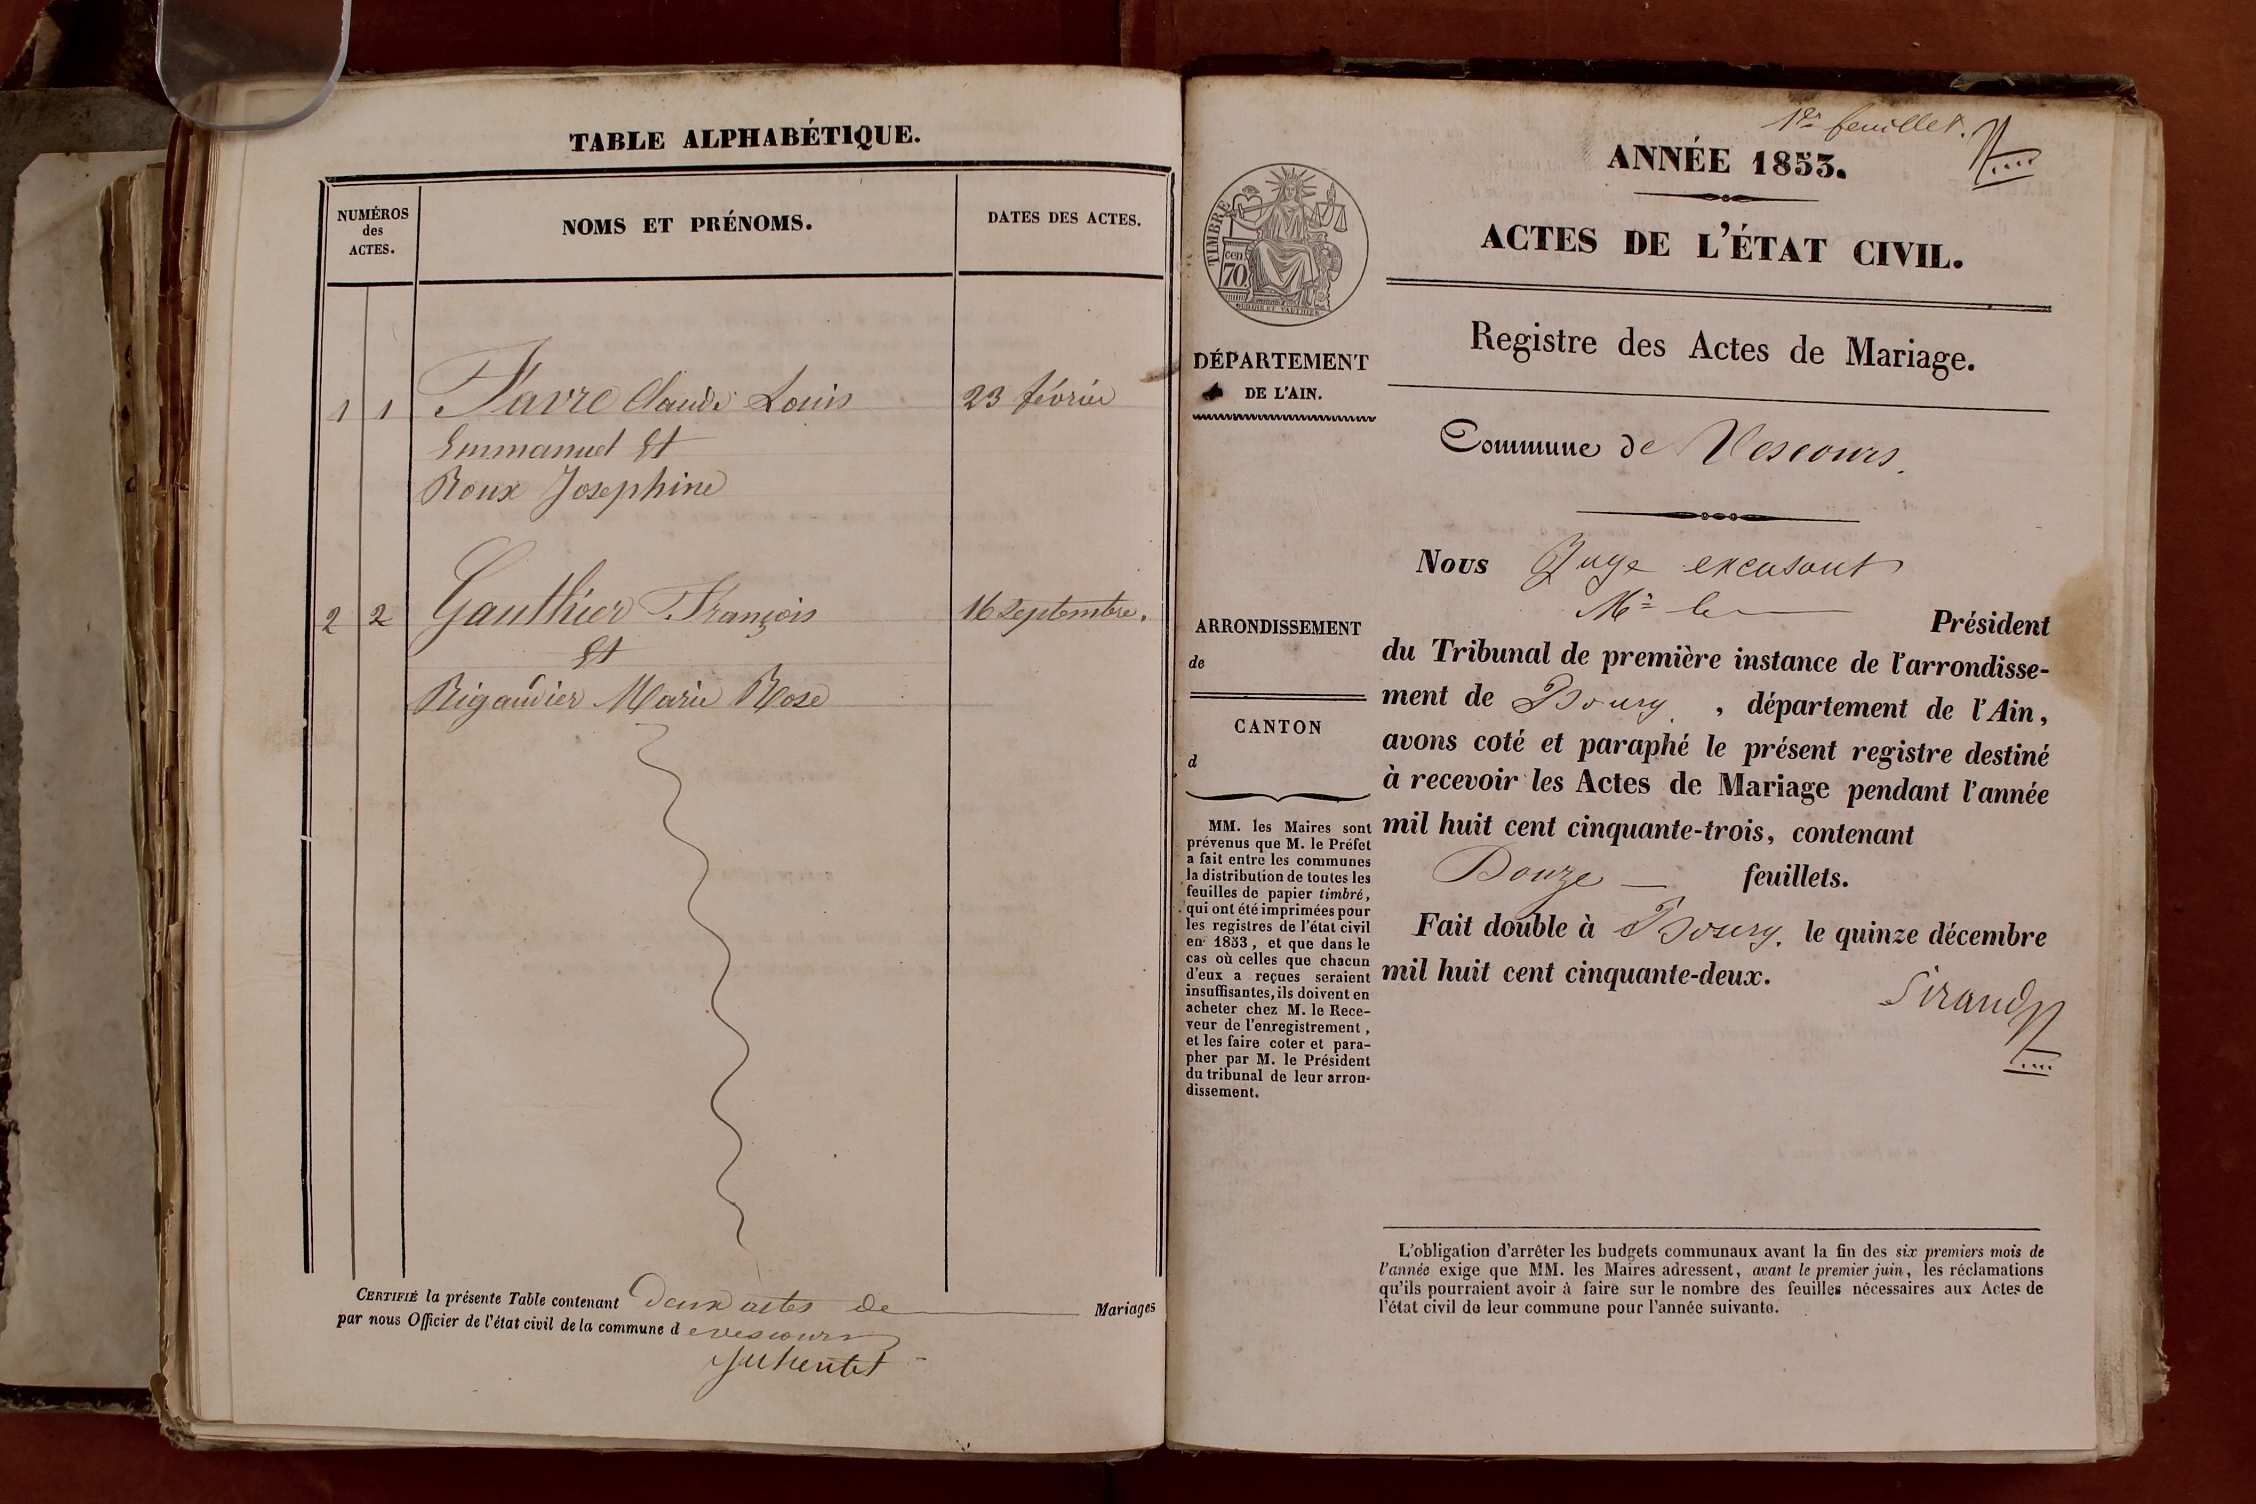 TABLE ALPHABÉTIQUE.
NUMÉROS
des
ACTES.
NOMS ET PRÉNOMS.
DATES DES ACTES.
1 1 Favre Claude Louis 23 février
Emmanuel Et
Roux Josephine
2 2 Gauthier François 16 Septembre.
Et
Rigaudier Marie Rose
CERTIFIÉ la présente Table contenant deux actes de Mariages
par nous Officier de l'état civil de la commune d evescours
1er feuillet.
ANNÉE 1853.
ACTES DE L'ÉTAT CIVIL.
Registre des Actes de Mariage.
TIMBRE
70
cen
DÉPARTEMENT
DE L'AIN.
Commune de Vescours.
Nous Juge excusant
Mr le
Président
du Tribunal de première instance de l'arrondisse-
ment de Bourg, département de l'Ain,
avons coté et paraphé le présent registre destiné
à recevoir les Actes de Mariage pendant l'année
mil huit cent cinquante-trois, contenant
Douze feuillets.
Fait double à Bourg. le quinze décembre
mil huit cent cinquante-deux.
Sirand
ARRONDISSEMENT
de
CANTON
d
MM. les Maires sont
prévenus que M. le Préfet
a fait entre les communes
la distribution de toutes les
feuilles de papier timbré,
qui ont été imprimées pour
les registres de l'état civil
en 1853, et que dans le
cas où celles que chacun
d'eux a reçues seraient
insuffisantes, ils doivent en
acheter chez M. le Rece-
veur de l'enregistrement,
et les faire coter et para-
pher par M. le Président
du tribunal de leur arron-
dissement.
L'obligation d'arrêter les budgets communaux avant la fin des six premiers mois de
l'année exige que MM. les Maires adressent, avant le premier juin, les réclamations
qu'ils pourraient avoir à faire sur le nombre des feuilles nécessaires aux Actes de
l'état civil de leur commune pour l'année suivante.